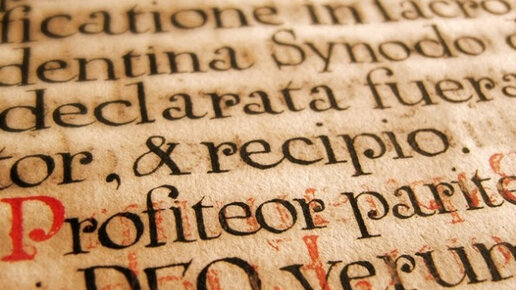 ficatione in sacro
dentina Synodo
declarata fuera
tor, & recipio.
Profiteor parite
DEO verum